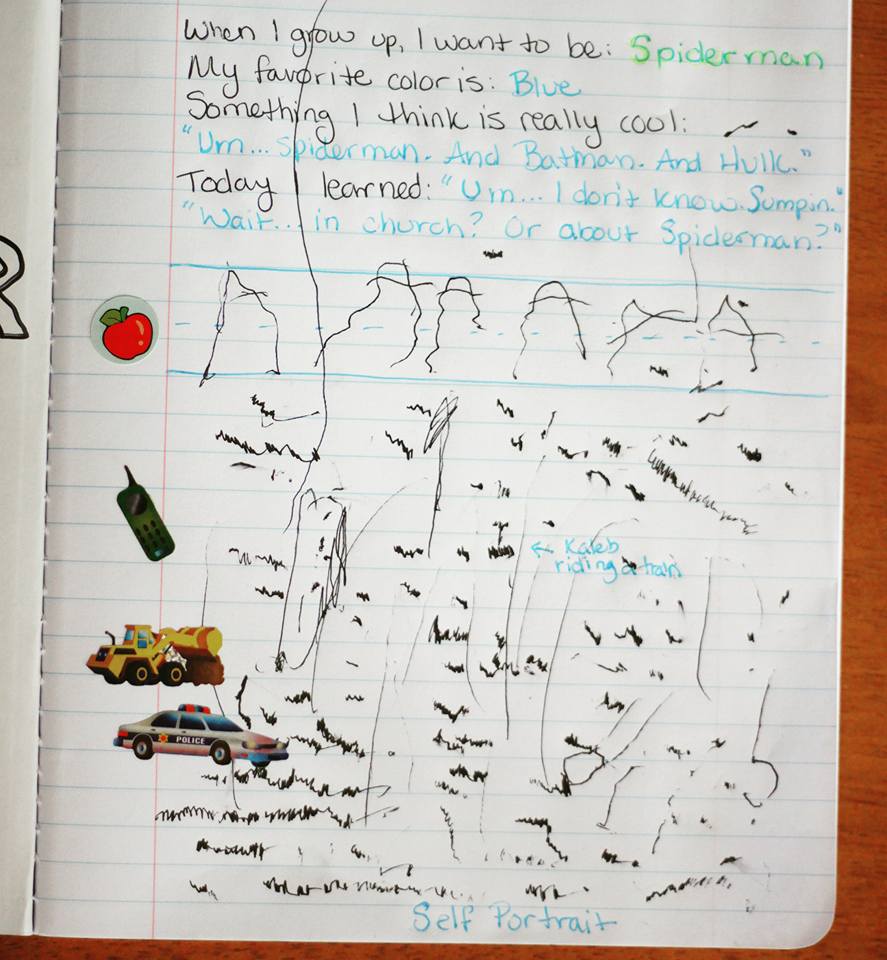 When I grow up, I want to be: Spiderman
My favorite color is: Blue
Something I think is really cool:
"Um... Spiderman. And Batman. And Hulk."
Today I learned: "Um... I don't know. Sumpin."
"Wait... in church? Or about Spiderman?"
R
← Kaleb
riding a train
POLICE
Self Portrait